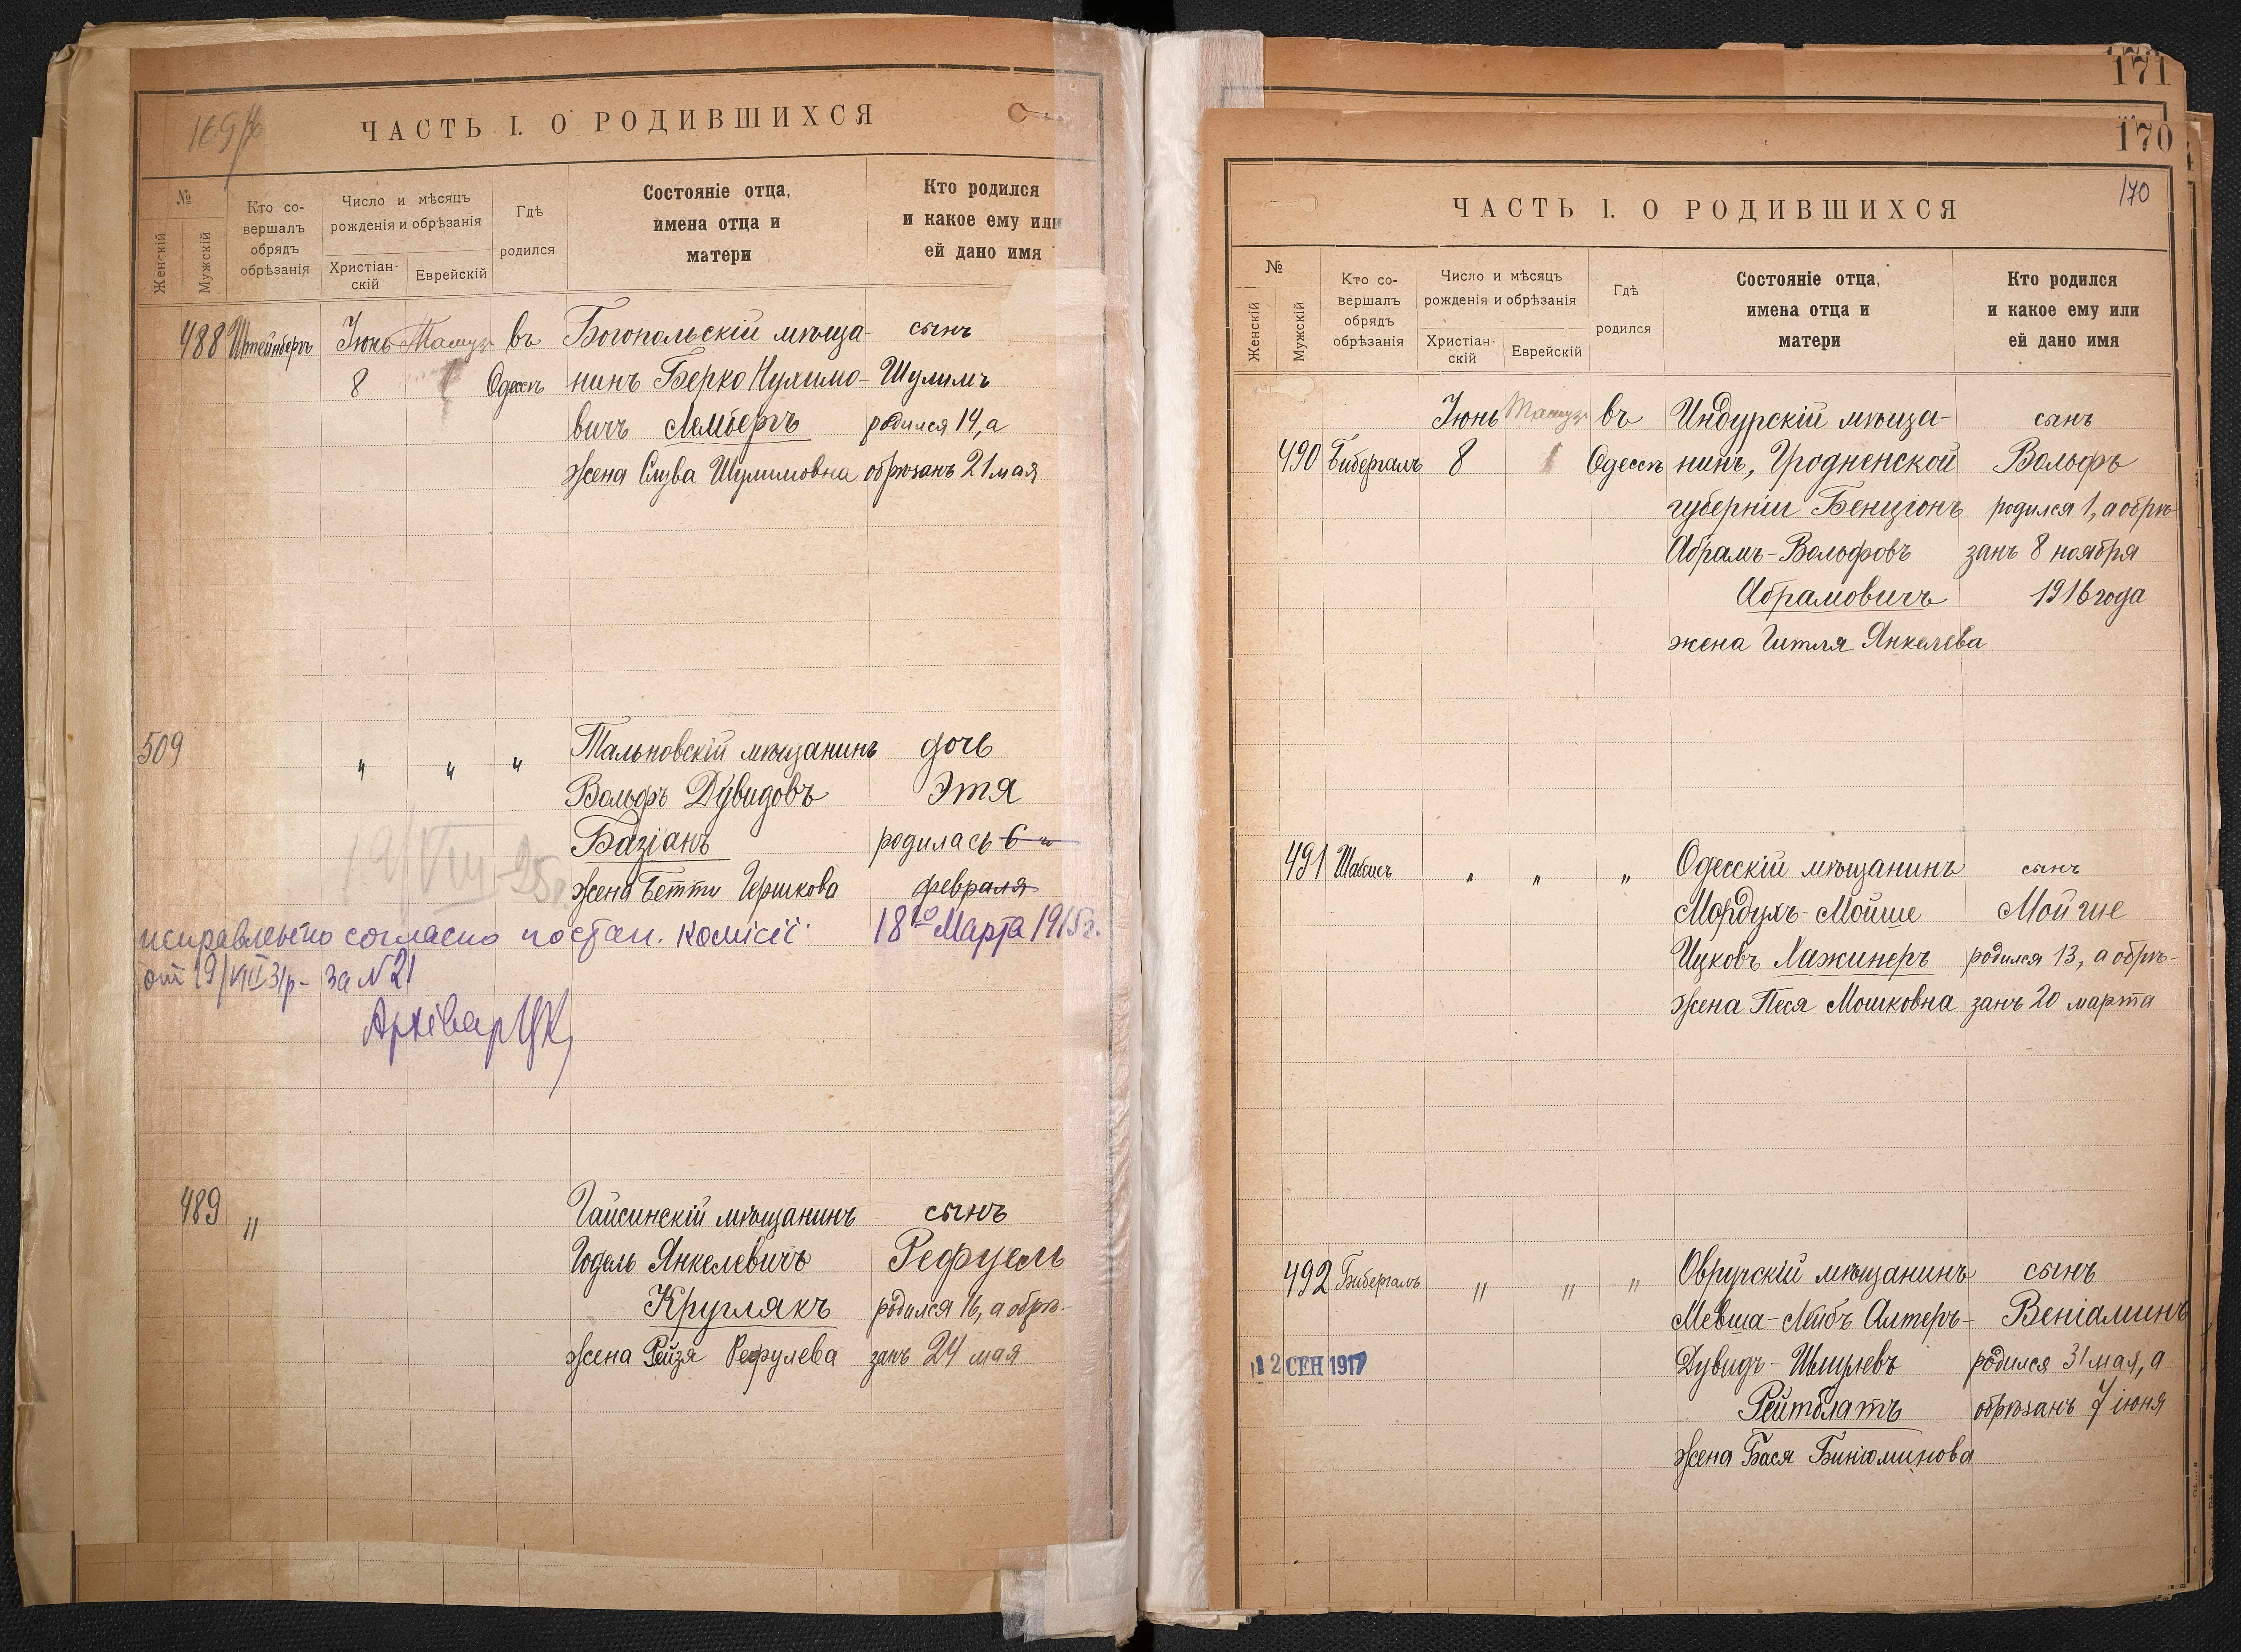 169/
ЧАСТЬ I. О РОДИВШИХСЯ
№
Женскій
Мужскій
Кто со-
вершалъ
обрядъ
обрѣзанія
Число и мѣсяцъ
рожденія и обрѣзанія
Христіан-
скій
Еврейскій
Гдѣ
родился
Состояніе отца,
имена отца и
матери
Кто родился
и какое ему или
ей дано имя
488 Штейнбергъ Іюнь Тамузъ въ Богопольскій мѣща- сынъ
8 1 Одессѣ нинъ Берко Нухимо- Шулимъ
вичъ Лембергъ родился 14, а
жена Слува Шулимовна обрѣзанъ 21 мая
509 " " " Тальновскій мѣщанинъ дочь
Вольфъ Дувидовъ Этя
Базіанъ родилась 6 го
19/VIII-25
жена Бетти Гершкова февраля
исправлено согласно постан. комісії 18го Марта 1915г.
от 19/VIII 31р- за N 21
Архівар
489 " Гайсинскій мѣщанинъ сынъ
Годель Янкелевичъ Рефуель
Круглякъ родился 16, а обрѣ-
жена Рейзя Рефулева занъ 24 мая
171
170
170
ЧАСТЬ I. О РОДИВШИХСЯ
№
Женскій
Мужскій
Кто со-
вершалъ
обрядъ
обрѣзанія
Число и мѣсяцъ
рожденія и обрѣзанія
Христіан-
скій
Еврейскій
Гдѣ
родился
Состояніе отца,
имена отца и
матери
Кто родился
и какое ему или
ей дано имя
Іюнь Тамузъ въ Индурскій мѣща- сынъ
490 Бибергалъ 8 1 Одессѣ нинъ, Гродненской Вольфъ
губерніи Бенціонъ родился 1, а обрѣ-
Абрамъ-Вольфовъ занъ 8 ноября
Абрамовичъ 1916 года
жена Гитля Янкелева
491 Шабсисъ " " " Одесскій мѣщанинъ сынъ
Мордухъ-Мойше Мойше
Ицковъ Лажинеръ родился 13, а обрѣ-
жена Песя Мошковна занъ 20 марта
492 Бибергалъ " " " Овручскій мѣщанинъ сынъ
Мевша-Лейбъ Алтеръ- Веніаминъ
12 СЕН 1917 Дувидъ-Шмулевъ родился 31 мая, а
Рейтблатъ обрѣзанъ 7 іюня
жена Бася Биніоминова